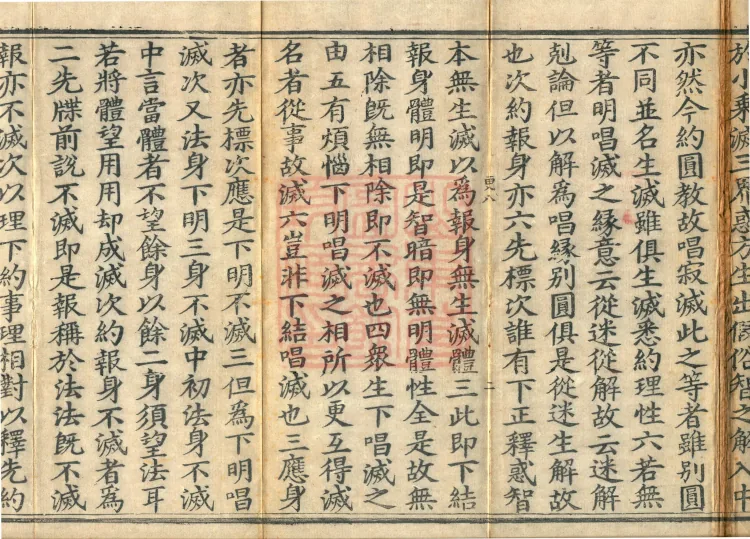 小乘滅三界惑方生出俗智之解入中
亦然今約圓教故唱寂滅此之等者雖別圓
不同並名生滅雖俱生滅悉約理性六若無
等者明唱滅之縁意云從迷從解故云迷解
剋論但以解爲唱縁別圓俱是從迷生解故
也次約報身亦六先標次誰有下正釋惑智
本無生滅以爲報身無生滅體三此即下結
報身體明即是智暗即無明體性全是故無
相除旣無相除即不滅也四衆生下唱滅之
由五有煩惱下明唱滅之相所以更互得滅
名者從事故滅六豈非下結唱滅也三應身
者亦先標次應是下明不滅三但爲下明唱
滅次又法身下明三身不滅中初法身不滅
中言當體者不望餘身以餘二身須望法耳
若將體望用用却成滅次約報身不滅者爲
二先牒前說不滅即是報稱於法法旣不滅
報亦不滅次以理下約事理相對以釋先約